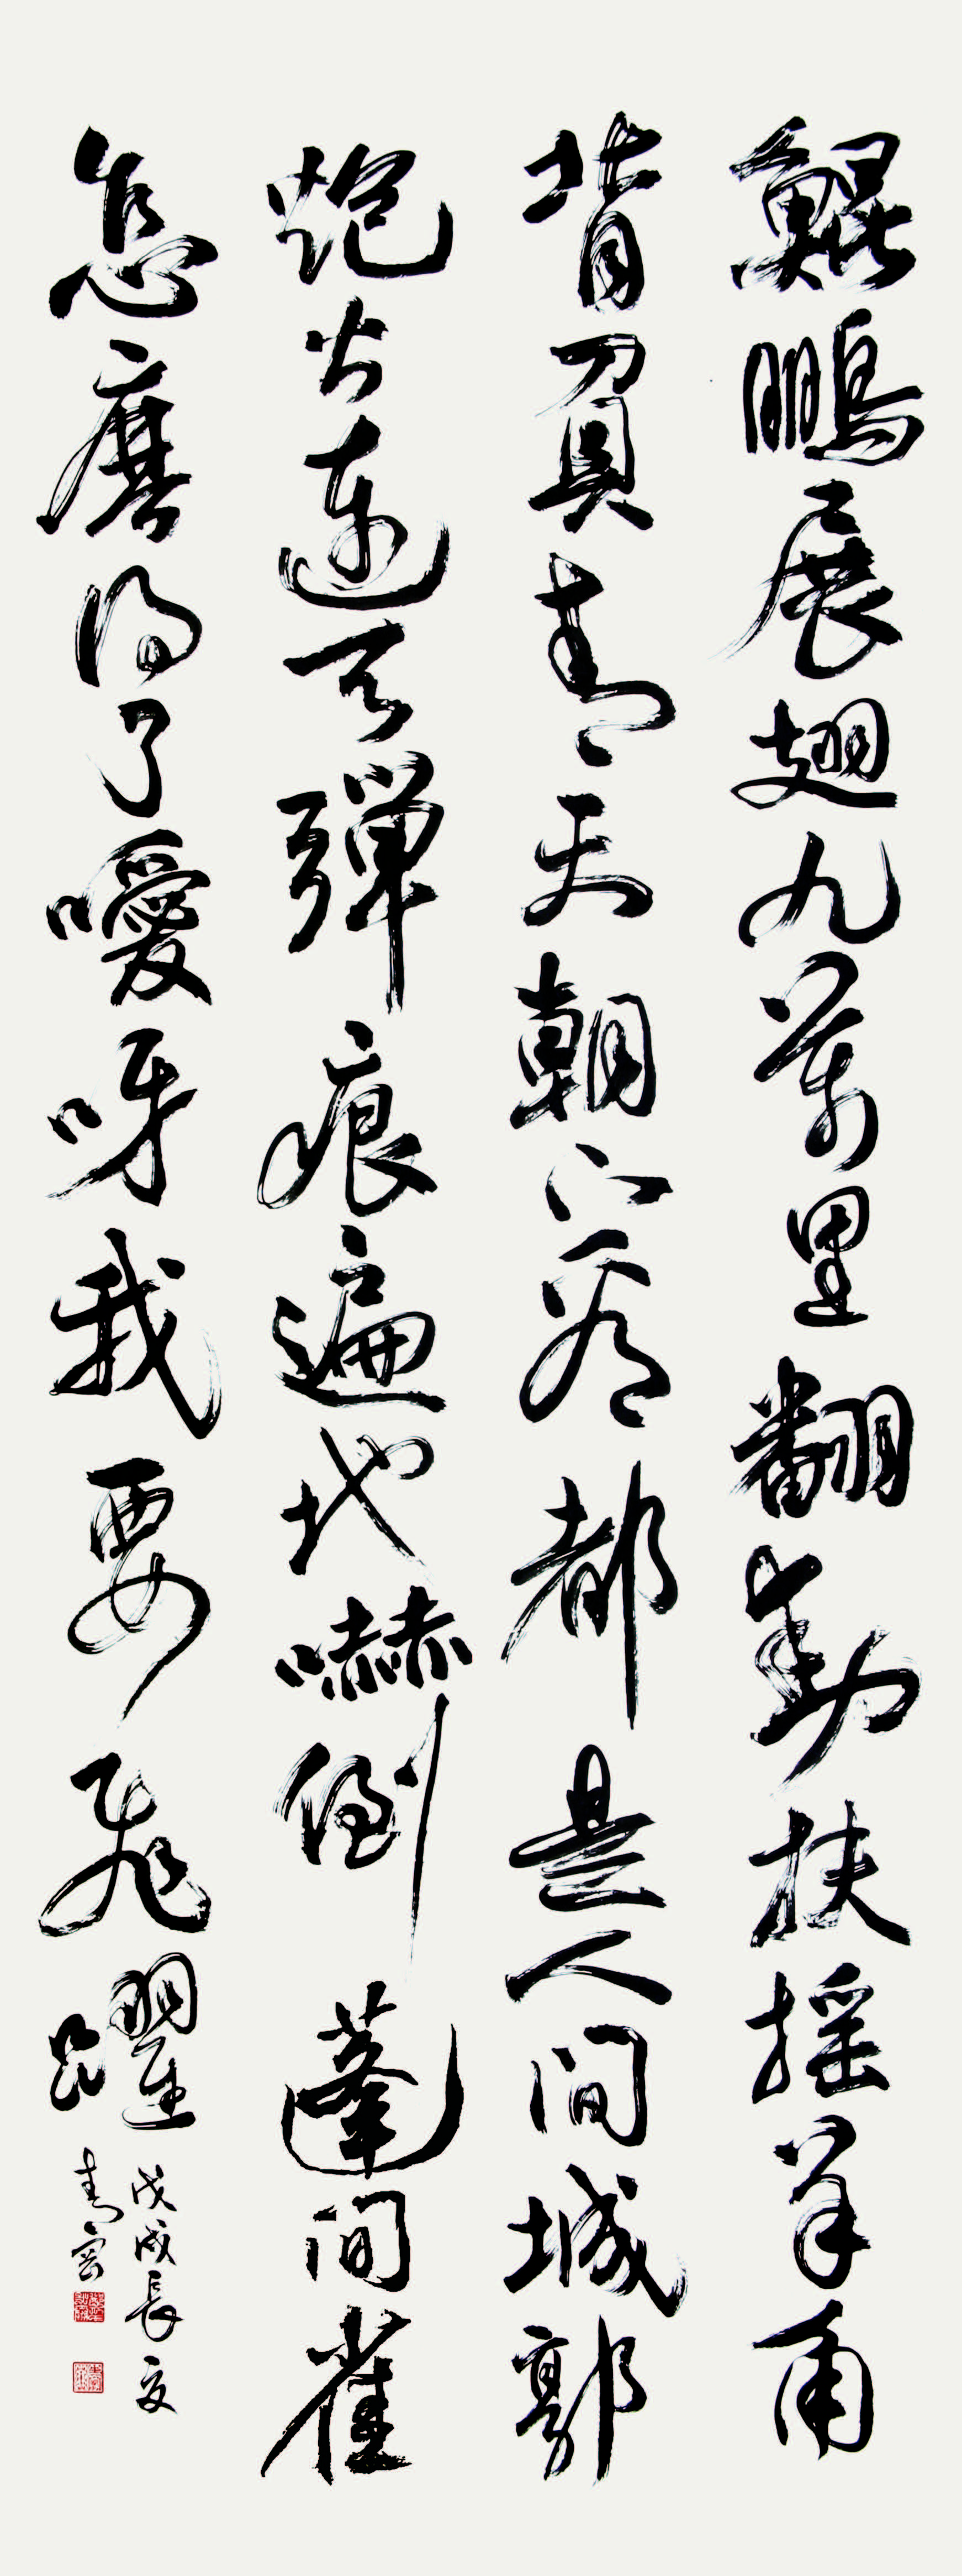 鯤鵬展翅九萬里翻動扶搖羊角
背負青天朝下看都是人間城郭
炮火連天彈痕遍地嚇倒蓬間雀
怎麼得了噯呀我要飛躍
戊戌長夏
青雲